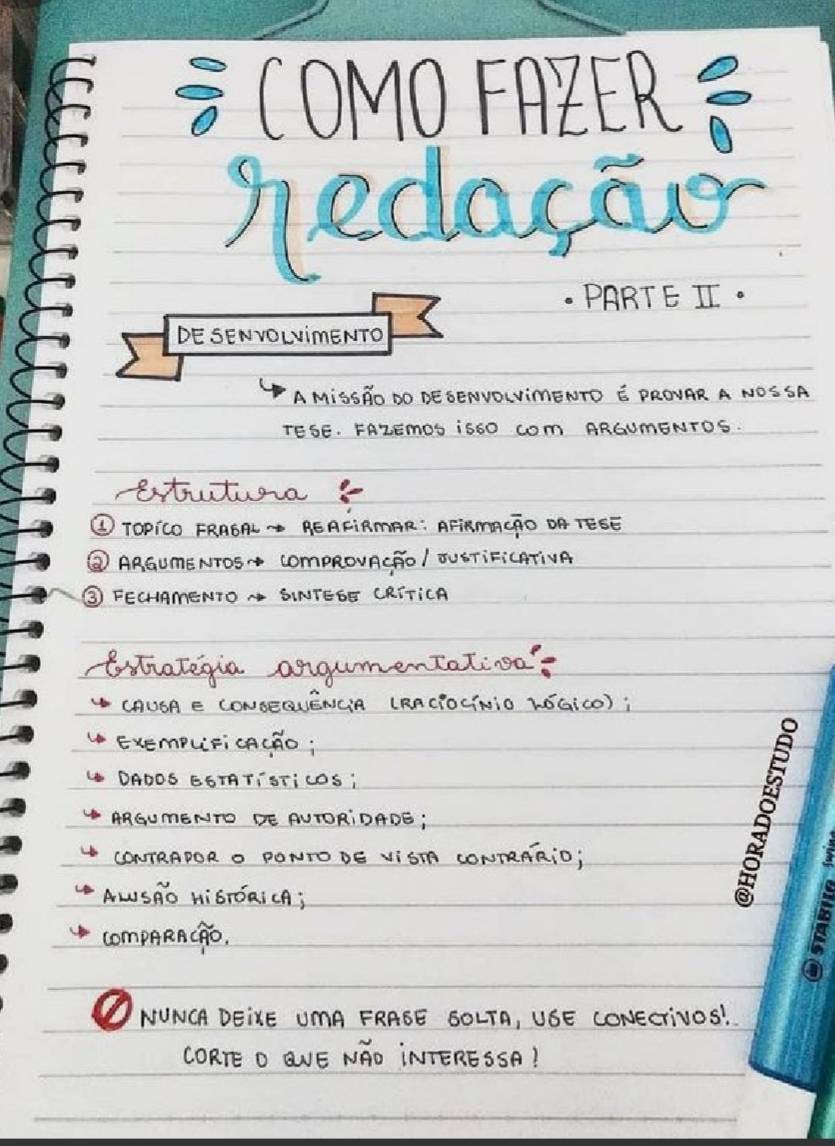 COMO FAZER
redação
• PARTE II •
DESENVOLVIMENTO
↳ A MISSÃO DO DESENVOLVIMENTO É PROVAR A NOSSA
TESE. FAZEMOS ISSO COM ARGUMENTOS.
Estrutura
① TOPÍCO FRASAL → REAFIRMAR: AFIRMAÇÃO DA TESE
② ARGUMENTOS → COMPROVAÇÃO / JUSTIFICATIVA
③ FECHAMENTO → SINTESE CRÍTICA
Estratégia argumentativa
↳ CAUSA E CONSEQUÊNCIA (RACIOCÍNIO LÓGICO);
↳ EXEMPLIFICAÇÃO;
↳ DADOS ESTATÍSTICOS;
↳ ARGUMENTO DE AUTORIDADE;
↳ CONTRAPOR O PONTO DE VISTA CONTRÁRIO;
↳ ALUSÃO HISTÓRICA;
↳ COMPARAÇÃO.
NUNCA DEIXE UMA FRASE SOLTA, USE CONECTIVOS!
CORTE O QUE NÃO INTERESSA!
@HORADOESTUDO
STABILO